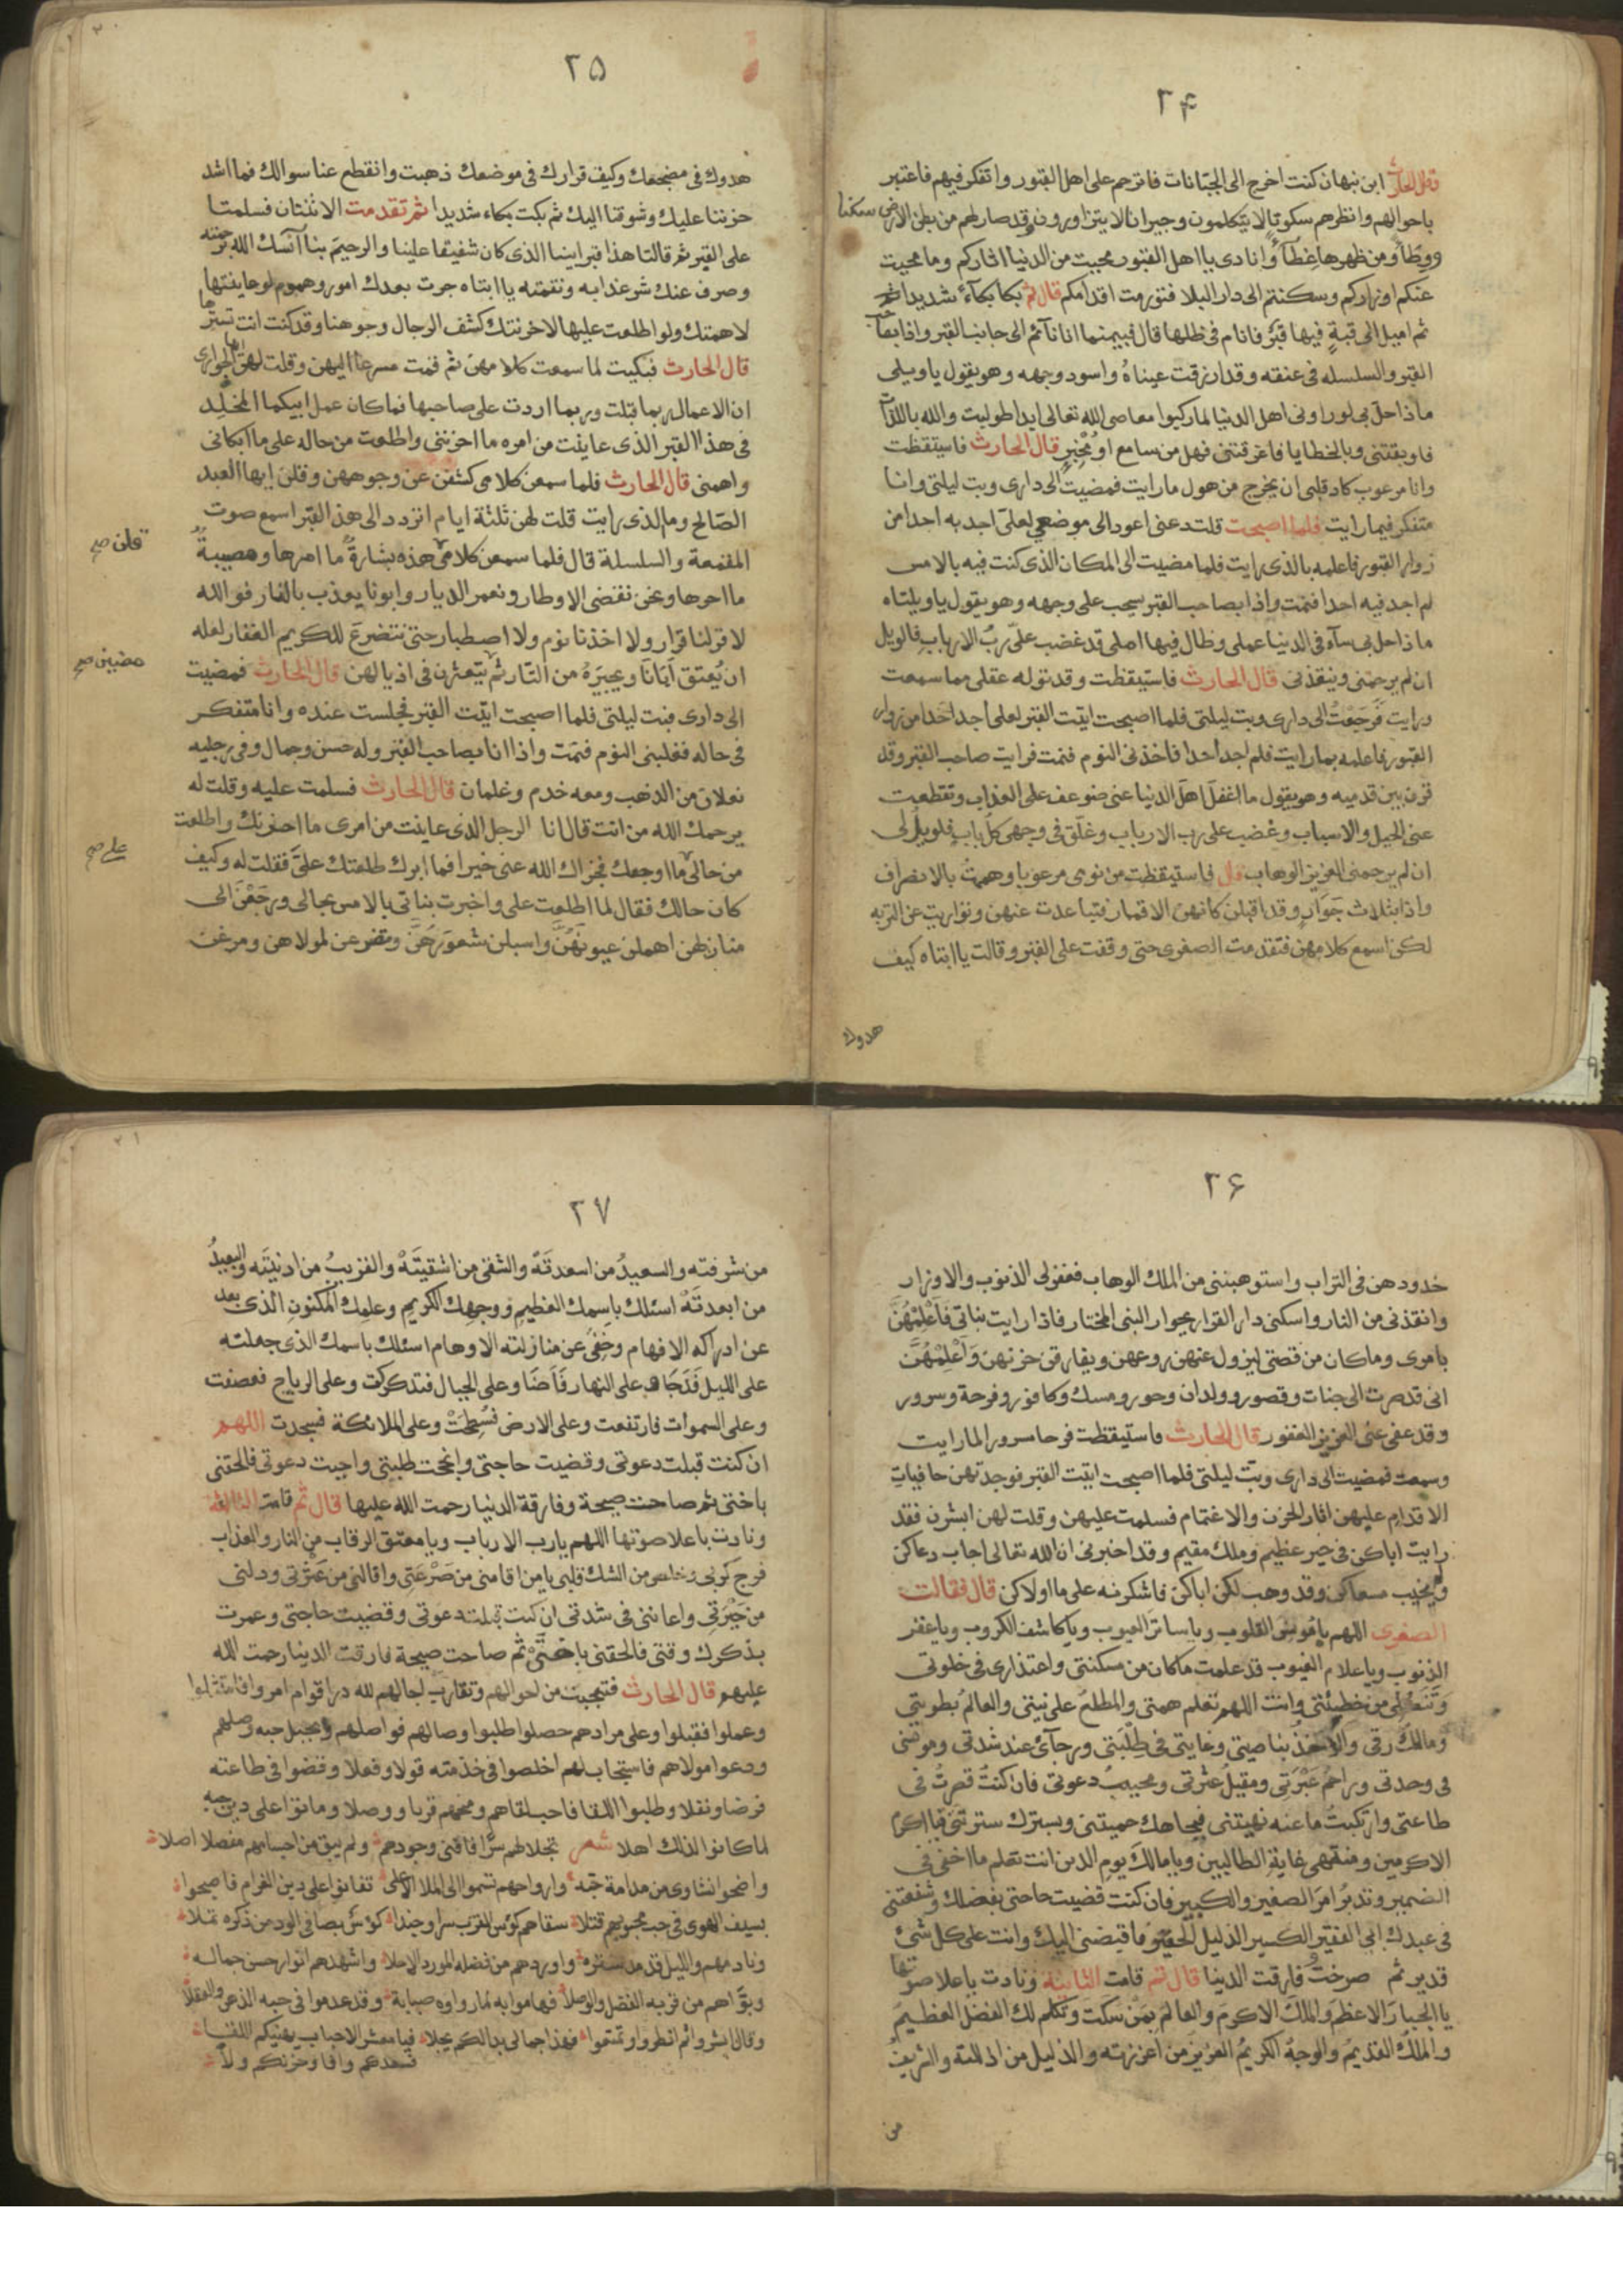 ۲۴
قال الحارث ابن نبهان كنت اخرج الى الجبانات فاترحم على اهل القبور واتفكر فيهم فاعتبر
باحوالهم وانظرهم سكوتا لا يتكلمون وجيرانا لا يتزاورون وقد صار لهم من بطن الارض سكنا
ووطاً ومن ظهرها غطآءً وانادى يا اهل القبور محيت من الدنيا اثاركم وما محيت
عنكم اوزاركم وسكنتم الى دار البلا فتورمت اقدامكم قال ثم بكا بكآءً شديدا
ثم اميل الى قبةٍ فيها قبرٌ فانام فى ظلها قال فبينما انا نآئم الى جانب القبر واذا بصاحب
القبر والسلسله فى عنقه وقد ازرقت عيناهُ واسود وجهه وهو يقول يا ويلى
ماذا حل بى لو راونى اهل الدنيا لما ركبوا معاصى الله تعالى ابدا طوليت والله باللذات
فاوبقتنى وبالخطايا فاغرقتنى فهل من سامع او مُخبرٍ قال الحارث فاستيقظت
وانا مرعوب كاد قلبى ان يخرج من هول ما رايت فمضيت الى دارى وبت ليلتى وانا
متفكر فيما رايت فلما اصبحت قلت دعنى اعود الى موضعى لعلى اجد به احدا من
زوار القبور فاعلمه بالذى رايت فلما مضيت الى المكان الذى كنت فيه بالامس
لم اجد فيه احدا فنمت واذا بصاحب القبر يسحب على وجهه وهو يقول يا ويلتاه
ماذا حل بى ساء فى الدنيا عملى وطال فيها املى قد غضب علىّ ربُ الارباب فالويل
ان لم يرحمنى وينقذنى قال الحارث فاستيقظت وقد توله عقلى مما سمعت
ورايت فَرَجَعْتُ الى دارى وبت ليلتى فلما اصبحت اتيت القبر لعلى اجد احدا من زوار
القبور فاعلمه بما رايت فلم اجد احدا فاخذنى النوم فنمت فرايت صاحب القبر وقد
قرن بين قدميه وهو يقول ما اغفل اهل الدنيا عنى ضوعف على العذاب وتقطعت
عنى الحيل والاسباب وغضب على رب الارباب وغلّق فى وجهى كل بابٍ فلويلُ لى
ان لم يرحمنى العزيز الوهاب قال فاستيقظت من نومى مرعوبا وهممت بالانصراف
واذا بثلاث جَوَارٍ وقد اقبلن كانهن الاقمار فتباعدت عنهن وتواريت عن التربه
لكى اسمع كلامهن فتقدمت الصغرى حتى وقفت على القبر وقالت يا ابتاه كيف
هدوك
۲۵
هدوك فى مضجعك وكيف قرارك فى موضعك ذهبت وانقطع عنا سوالك فما اشد
حزننا عليك وشوقنا اليك ثم بكت بكاء شديدا ثم تقدمت الاثنتان فسلمتا
على القبر ثم قالتا هذا قبر ابينا الذى كان شفيقا علينا والرحيمَ بنا آنسك الله برحمته
وصرف عنك شر عذابه ونقمته يا ابتاه جرت بعدك امور وهموم لو عاينتها
لاهمتك ولو اطلعت عليها لاحزنتك كشف الرجال وجوهنا وقد كنت انت تسترها
قال الحارث فبكيت لما سمعت كلامهن ثم قمت مسرعا اليهن وقلت لهن ايها الجوارى
ان الاعمال ربما قبلت وربما اردت على صاحبها فما كان عمل ابيكما المخلد
فى هذا القبر الذى عاينت من امره ما احزننى واطلعت من حاله على ما ابكانى
واهمنى قال الحارث فلما سمعن كلامى كشفن عن وجوههن وقلن ايها العبد
الصالح وما الذى رايت قلت لهن ثلثة ايام اتردد الى هذ القبر اسمع صوت
المقمعة والسلسلة قال فلما سمعن كلامى هذه بشارةً ما امرها ومصيبةً
قلن صح
ما احرها ونحن نقضى الاوطار ونعمر الديار وابونا يعذب بالنار فوالله
لا قر لنا قرار ولا اخذنا نوم ولا اصطبار حتى نتضرع للكريم الغفار لعله
ان يُعتق اَبَانَا ويجيرَهُ من النّار ثم يتعثرن فى اذيالهن قال الحارث فمضيت
مضين صح
الى دارى فبت ليلتى فلما اصبحت اتيت القبر فجلست عنده وانا متفكر
فى حاله فغلبنى النوم فنمت واذا انا بصاحب القبر وله حسن وجمال وفى رجليه
نعلان من الذهب ومعه خدم وغلمان قال الحارث فسلمت عليه وقلت له
يرحمك الله من انت قال انا الرجل الذى عاينت من امرى ما احزنك واطلعت
من حالى ما اوجعك فجزاك الله عنى خيرا فما ابرك طلعتك علىّ فقلت له وكيف
على صح
كان حالك فقال لما اطلعت على واخبرت بناتى بالامس بحالى ورجَعْنَ الى
منازلهن اهملن عيونَهُنّ واسبلن شعورَهُنّ وتضرعن لمولاهن ومرغن
۲۶
خدودهن فى التراب واستوهبننى من الملك الوهاب فغفر لى الذنوب والاوزار
وانقذنى من النار واسكننى دار القرار بجوار النبى المختار فاذا رايت بناتى فَاَعْلِمْهُنّ
بامرى وما كان من قصتى ليزول عنهن روعهن ويفارقن حزنهن وَاَعْلِمْهُنَّ
انى قد صرت الى جنات وقصور وولدان وحور ومسك وكافور وفرحة وسرور
وقد عفى عنى العزيز الغفور قال الحارث فاستيقظت فرحا مسرورا لما رايت
وسمعت فمضيت الى دارى وبتّ ليلتى فلما اصبحت اتيت القبر فوجدتهن حافياتِ
الاقدام عليهن اثار الحزن والاغتمام فسلمت عليهن وقلت لهن ابشرن فقد
رايت اباكن فى خير عظيم وملك مقيم وقد اخبرنى ان الله تعالى اجاب دعاكن
ولم يخيب مسعاكن وقد وهب لكن اباكن فاشكرنه على ما اولاكن قال فقالت
الصغرى اللهم يا مونس القلوب ويا ساتر العيوب ويا كاشف الكروب ويا غفر
الذنوب ويا علام الغيوب قد علمت ما كان من مسكنتى واعتذارى فى خلوتى
وَتَنَصُّلِى من خطيئتى وانت اللهم تعلم همتى والمطلع على نيتى والعالمُ بطويتى
ومالكُ رقى والآخذُ بناصيتى وغايتى فى طِلْبَتى ورجآئ عند شدتى ومونسى
فى وحدتى وراحمُ عَبْرَتِى ومقيلُ عثرتى ومجيبُ دعوتى فان كنتُ قصرتُ فى
طاعتى وارتكبتُ ما عنه نهيتنى فبجاهك حميتنى وبسترك سترتنى فيا اكرم
الاكرمين ومنتهى غاية الطالبين ويا مالكَ يوم الدين انت تعلم ما اخفى فى
الضمير وتدبرُ امرَ الصغير والكبير فان كنت قضيت حاجتى بفضلك وشفعتنى
فى عبدك ابى الفقير الكسير الذليل الحقير فاقبضنى اليك وانت على كل شئ
قدير ثم صرختْ وفارقت الدنيا قال ثم قامت الثانية ونادت باعلا صوتها
يا الجبارَ الاعظمَ والملكَ الاكرمَ والعالمُ بمَنْ سكت وتكلم لك الفضل العظيمُ
والملكُ القديمُ والوجهُ الكريمُ العزيزُ من اعززته والذليل من اذللتة والشريفُ
من
۲۷
من شرفته والسعيدُ من اسعدتَهُ والشقى من اشقيتَهُ والقريبُ من ادنيتَه والبعيدُ
من ابعدتَهُ اسئلك باسمك العظيم ووجهك الكريم وعلمك المكنونِ الذى بعد
عن ادراكه الافهام وخفى عن منازلته الاوهام اسئلك باسمك الذى جعلته
على الليل فَدَجَا وعلى النهار فَاَضَا وعلى الجبال فتدكدكت وعلى الرياح فعصفت
وعلى السموات فارتفعت وعلى الارض فسُطِحَتْ وعلى الملائكة فسجدت اللهم
ان كنت قبلت دعوتى وقضيت حاجتى وانجحت طلبتى واجبت دعوتى فالحقنى
باختى ثم صاحت صيحة وفارقة الدنيا رحمت الله عليها قال ثم قامت الثالثة
ونادت باعلا صوتها اللهم يا رب الارباب ويا معتق الرقاب من النار والعذاب
فرج كربى وخلص من الشك قلبى يا من اقامنى من صَرْعَتِى واقالنى من عَثْرتى ودلنى
من حَيْرَتِى واعاننى فى شدتى ان كنت قبلت دعوتى وقضيت حاجتى وعمرت
بذكرك وقتى فالحقنى باختَىَّ ثم صاحت صيحة فارقت الدينا رحمت الله
عليهم قال الحارث فتعجبت من احوالهم وتقارب اجالهم لله در اقوام امروا فامتثلوا
وعملوا فقبلوا وعلى مرادهم حصلوا طلبوا وصالهم فواصلهم وبحبل حبه وصلهم
ودعوا مولاهم فاستجاب لهم اخلصوا فى خدمته قولا وفعلا وقضوا فى طاعته
فرضا ونفلا وطلبوا اللقا فاحب لقاهم ومنحهم قربا ووصلا وماتوا على دين حبه
لما كانوا لذلك اهلا شعر تجلا لهم سرًا فافنى وجودهم ولم يبق من اجسامهم مفصلا اصلا
واضحوا نشاوى من مدامة حبه وارواحهم تسموا الى الملا الاعلى تفانوا على دين الغرام فاصبحوا
بسيف الهوى فى حب محبوبهم قتلا سقاهم كؤس القرب سرا وحبذا كؤس بصافى الود من ذكره تملا
ونادمهم والليل قد مد ستره واوردهم من فضله المورد الاحلا واشهدهم انوار حسن جماله
وبوّاهم من قربه الفضل والوصلا فهاموا به لما راوه صبابة وقد عدموا فى حبه الذعر والعقلا
وقال ابشروا ثم انظروا وتمتعوا فهذا جمالى بدا لكم يجلا فيا معشر الاحباب يهنيكم اللقا